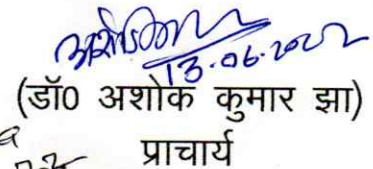 13.06.2022
(डॉ0 अशोक कुमार झा)
प्राचार्य